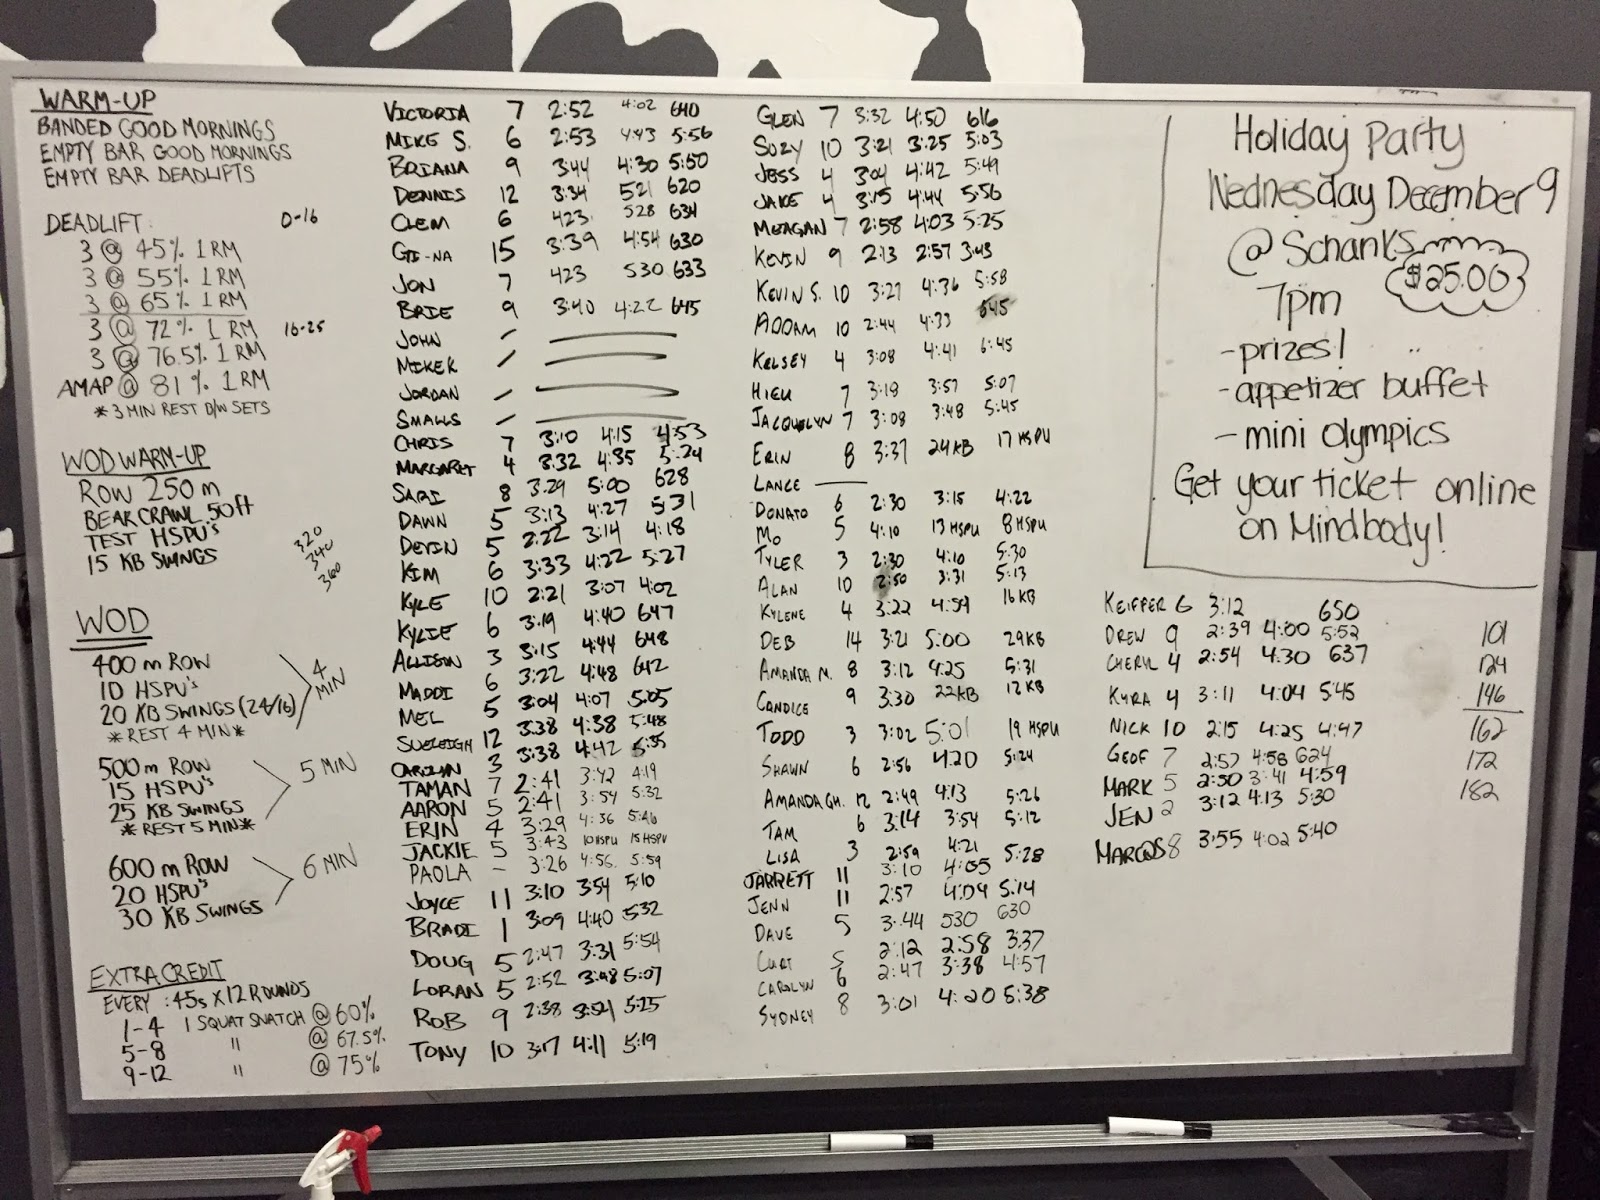 WARM-UP
BANDED GOOD MORNINGS
EMPTY BAR GOOD MORNINGS
EMPTY BAR DEADLIFTS
DEADLIFT: 0-16
3 @ 45% 1RM
3 @ 55% 1RM
3 @ 65% 1RM
3 @ 72% 1 RM 16-25
3 @ 76.5% 1RM
AMAP @ 81% 1RM
*3 MIN REST B/W SETS
WOD WARM-UP
ROW 250 m
BEAR CRAWL 50ft
TEST HSPU'S
15 KB SWINGS
320
340
360
WOD
400 m ROW
10 HSPU's
20 KB SWINGS (24/16)
*REST 4 MIN*
4 MIN
500m ROW
15 HSPU's
25 KB SWINGS
*REST 5 MIN*
5 MIN
600m ROW
20 HSPU's
30 KB SWINGS
6 MIN
EXTRA CREDIT
EVERY :45s X 12 ROUNDS
1-4 1 SQUAT SNATCH @ 60%
5-8 " @ 67.5%
9-12 " @ 75%
VICTORIA 7 2:52 4:02 640
MIKE S. 6 2:53 4:43 5:56
BRIANA 9 3:44 4:30 5:50
DENNIS 12 3:34 521 620
CLEM 6 423 528 634
GI-NA 15 3:39 4:54 630
JON 7 423 530 633
BRIE 9 3:40 4:22 645
JOHN
MIKE K
JORDAN
SMALLS
CHRIS 7 3:10 4:15 4:53
MARGARET 4 3:32 4:35 5:24
SARI 8 3:29 5:00 628
DAWN 5 3:13 4:27 5:31
DEVIN 5 2:22 3:14 4:18
KIM 6 3:33 4:22 5:27
KYLE 10 2:21 3:07 4:02
KYLIE 6 3:19 4:40 647
ALLISON 3 3:15 4:44 648
MADDI 6 3:22 4:48 642
MEL 5 3:04 4:07 5:05
SUELEIGH 12 3:38 4:38 5:48
CAROLYN 3 3:38 4:42 5:35
TAMAN 7 2:41 3:42 4:19
AARON 5 2:41 3:54 5:32
ERIN 4 3:29 4:36 5:46
JACKIE 5 3:43 10 HSPU 15 HSPU
PAOLA - 3:26 4:56 5:59
JOYCE 11 3:10 354 5:10
BRADI 1 3:09 4:40 532
DOUG 5 2:47 3:31 5:54
LORAN 5 2:52 3:48 5:07
ROB 9 2:38 3:54 5:25
TONY 10 3:17 4:11 5:19
GLEN 7 3:32 4:50 616
SUZY 10 3:21 3:25 5:03
JESS 4 304 4:42 5:49
JAKE 4 3:15 4:44 5:56
MEAGAN 7 2:58 4:03 5:25
KEVIN 9 2:13 2:57 3:43
KEVIN S. 10 3:27 4:36 5:58
ADDAM 10 2:44 4:33 645
KELSEY 4 3:08 4:41 6:45
HIEU 7 3:19 3:57 5:07
JACQUELYN 7 3:08 3:48 5:45
ERIN 8 3:37 24KB 17 HSPU
LANCE
DONATO 6 2:30 3:15 4:22
MO 5 4:10 13 HSPU 8 HSPU
TYLER 3 2:30 4:10 5:30
ALAN 10 2:50 3:31 5:13
KYLENE 4 3:22 4:59 16 KB
DEB 14 3:21 5:00 29KB
AMANDA M. 8 3:12 4:25 5:31
CANDICE 9 3:30 22KB 12 KB
TODD 3 3:02 5:01 19 HSPU
SHAWN 6 2:56 4:20 5:24
AMANDA GH. 12 2:49 4:13 5:26
TAM 6 3:14 3:54 5:12
LISA 3 2:59 4:21 5:28
JARRETT 11 3:10 4:05
JENN 11 2:57 4:09 5:14
DAVE 5 3:44 530 630
CURT 5 2:12 2:58 3:37
CAROLYN 6 2:47 3:38 4:57
SYDNEY 8 3:01 4:20 5:38
Holiday Party
Wednesday December 9
@ Schanks
$25.00
7pm
- prizes!
- appetizer buffet
- mini olympics
Get your ticket online
on Mindbody!
KEIFFER 6 3:12 650
DREW 9 2:39 4:00 5:52
CHERYL 4 2:54 4:30 637
KYRA 4 3:11 4:04 5:45
NICK 10 2:15 4:25 4:47
GEOF 7 2:57 4:58 624
MARK 5 2:50 3:41 4:59
JEN 2 3:12 4:13 5:30
MARCOS 8 3:55 4:02 5:40
101
124
146
162
172
182